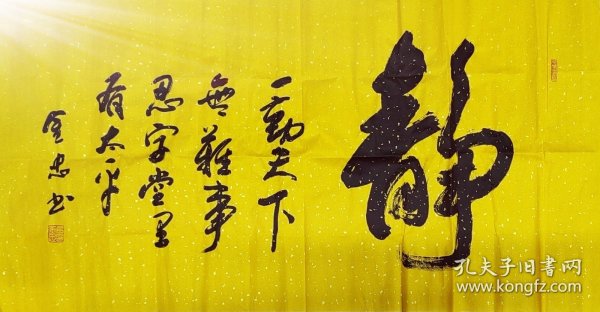 静
一勤天下
無難事
忍字堂里
有太平
金忠书
孔夫子旧书网
www.kongfz.com